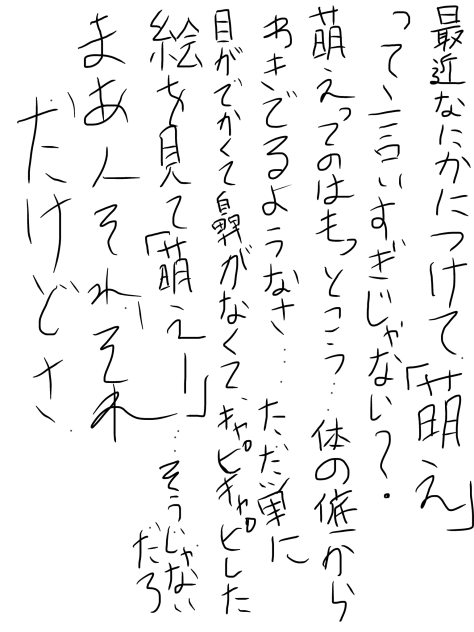 最近なにかにつけて「萌え」
って言いすぎじゃない?.
萌えってのはもっとこう…体の底から
わきでるようなさ……ただ単に
目がでかくて鼻がなくて、キャピキャピした
絵を見て「萌えー」…そうじゃない
だろ
まあ人それぞれ
だけどさ.